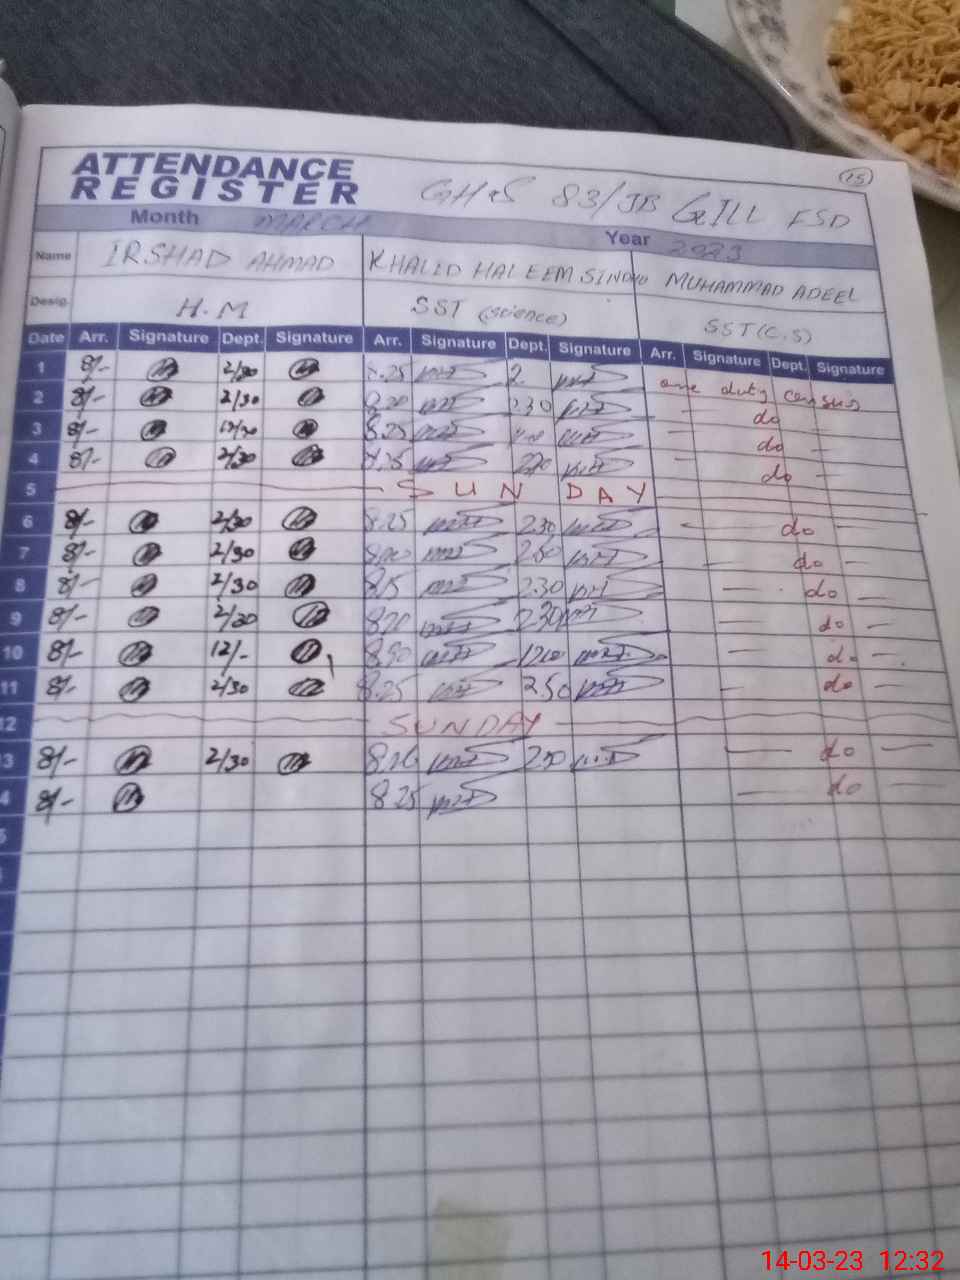 15
ATTENDANCE
REGISTER
GHS 83/JB GILL FSD
Month MARCH Year 2023
Name IRSHAD AHMAD KHALID HALEEM SINDHU MUHAMMAD ADEEL
Desig. H.M SST (science) SST (C.S)
Date Arr. Signature Dept. Signature Arr. Signature Dept. Signature Arr. Signature Dept. Signature
1 8/- 2/30 8.25 2. one duty census
2 8/- 2/30 8.20 230 - do -
3 8/- 12/30 8.25 - do -
4 8/- 2/30 8.25 - do -
5 SUNDAY
6 8/- 2/30 8.25 230 - do -
7 8/- 2/30 - do -
8 8/- 2/30 8.15 2.30 - do -
9 8/- 2/30 8.20 2.30 - do -
10 8/- 12/- - do -
11 8/- 2/30 8.25 2.50 - do -
12 SUNDAY
3 8/- 2/30 - do -
4 8/- 8.25 - do
14-03-23 12:32